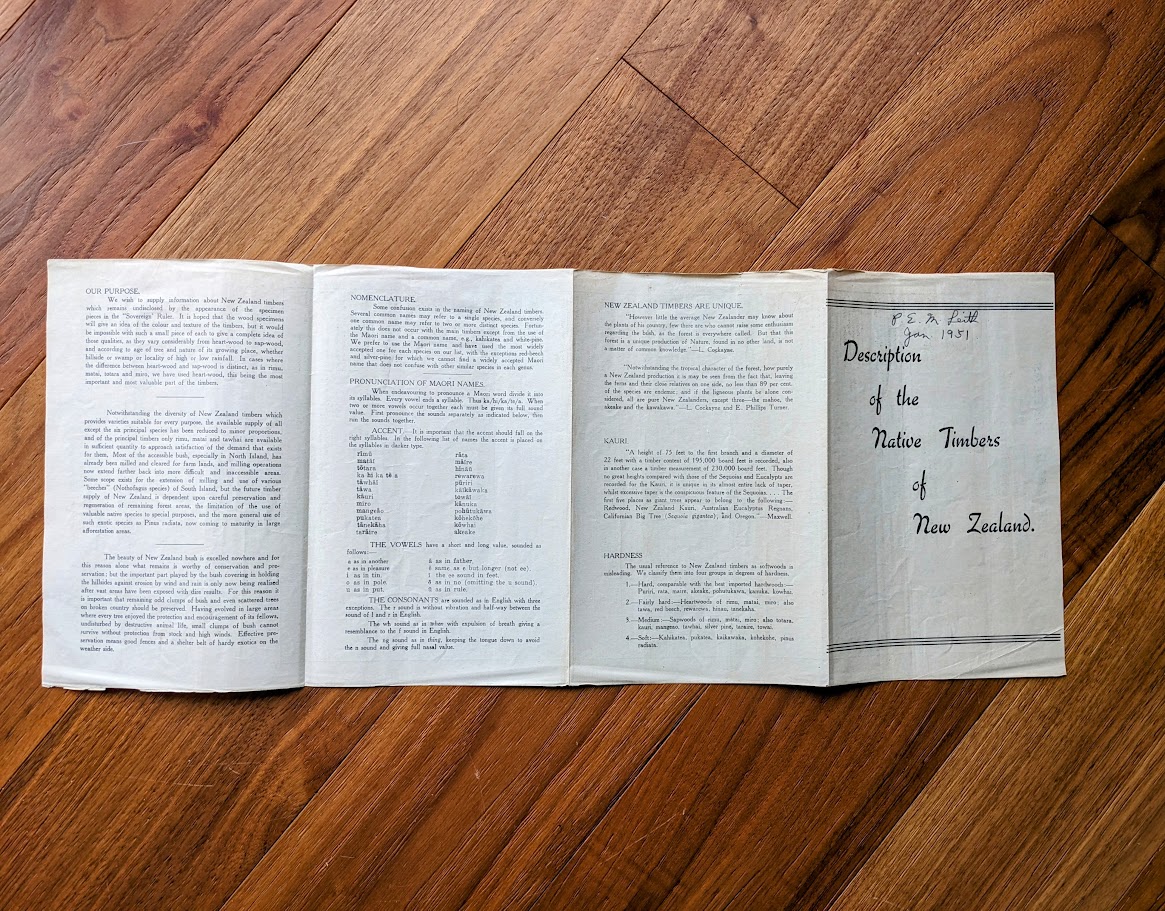 OUR PURPOSE.
We wish to supply information about New Zealand timbers
which remains undisclosed by the appearance of the specimen
pieces in the "Sovereign" Rules. It is hoped that the wood specimens
will give an idea of the colour and texture of the timbers, but it would
be impossible with such a small piece of each to give a complete idea of
those qualities, as they vary considerably from heart-wood to sap-wood,
and according to age of tree and nature of its growing place, whether
hillside or swamp or locality of high or low rainfall. In cases where
the difference between heart-wood and sap-wood is distinct, as in rimu,
matai, totara and miro, we have used heart-wood, this being the most
important and most valuable part of the timbers.
Notwithstanding the diversity of New Zealand timbers which
provides varieties suitable for every purpose, the available supply of all
except the six principal species has been reduced to minor proportions,
and of the principal timbers only rimu, matai and tawhai are available
in sufficient quantity to approach satisfaction of the demand that exists
for them. Most of the accessible bush, especially in North Island, has
already been milled and cleared for farm lands, and milling operations
now extend farther back into more difficult and inaccessible areas.
Some scope exists for the extension of milling and use of various
"beeches" (Nothofagus species) of South Island, but the future timber
supply of New Zealand is dependent upon careful preservation and
regeneration of remaining forest areas, the limitation of the use of
valuable native species to special purposes, and the more general use of
such exotic species as Pinus radiata, now coming to maturity in large
afforestation areas.
The beauty of New Zealand bush is excelled nowhere and for
this reason alone what remains is worthy of conservation and pre-
servation; but the important part played by the bush covering in holding
the hillsides against erosion by wind and rain is only now being realised
after vast areas have been exposed with dire results. For this reason it
is important that remaining odd clumps of bush and even scattered trees
on broken country should be preserved. Having evolved in large areas
where every tree enjoyed the protection and encouragement of its fellows,
undisturbed by destructive animal life, small clumps of bush cannot
survive without protection from stock and high winds. Effective pre-
servation means good fences and a shelter belt of hardy exotics on the
weather side.
NOMENCLATURE.
Some confusion exists in the naming of New Zealand timbers.
Several common names may refer to a single species, and conversely
one common name may refer to two or more distinct species. Fortun-
ately this does not occur with the main timbers except from the use of
the Maori name and a common name, e.g., kahikatea and white-pine.
We prefer to use the Maori name and have used the most widely
accepted one for each species on our list, with the exceptions red-beech
and silver-pine, for which we cannot find a widely accepted Maori
name that does not confuse with other similar species in each genus.
PRONUNCIATION OF MAORI NAMES.
When endeavouring to pronounce a Maori word divide it into
its syllables. Every vowel ends a syllable. Thus ka/hi/ka/te/a. When
two or more vowels occur together each must be given its full sound
value. First pronounce the sounds separately as indicated below, then
run the sounds together.
ACCENT.—It is important that the accent should fall on the
right syllables. In the following list of names the accent is placed on
the syllables in darker type.
rimū rāta
matāi māire
tōtara hīnāu
ka hi ka tē a rewarewa
tāwhāi pūriri
tāwa kāikāwaka
kāuri tōwāi
miro kānuka
māngeāo pohūtūkāwa
pūkātea kōhekōhe
tānekāha kōwhai
tarāire akeake
THE VOWELS have a short and long value, sounded as
follows:—
a as in another ā as in father.
e as in pleasure ē same as e but longer (not ee).
i as in tin. ī the ee sound in feet.
o as in pole ō as in no (omitting the u sound).
u as in put. ū as in rule.
THE CONSONANTS are sounded as in English with three
exceptions. The r sound is without vibration and half-way between the
sound of l and r in English.
The wh sound as in when with expulsion of breath giving a
resemblance to the f sound in English.
The ng sound as in thing, keeping the tongue down to avoid
the n sound and giving full nasal value.
NEW ZEALAND TIMBERS ARE UNIQUE.
"However little the average New Zealander may know about
the plants of his country, few there are who cannot raise some enthusiasm
regarding the bush, as the forest is everywhere called. But that this
forest is a unique production of Nature, found in no other land, is not
a matter of common knowledge."—L. Cockayne.
"Notwithstanding the tropical character of the forest, how purely
a New Zealand production it is may be seen from the fact that, leaving
the ferns and their close relatives on one side, no less than 89 per cent.
of the species are endemic; and if the ligneous plants be alone con-
sidered, all are pure New Zealanders, except three—the mahoe, the
akeake and the kawakawa."—L. Cockayne and E. Phillips Turner.
KAURI
"A height of 75 feet to the first branch and a diameter of
22 feet with a timber content of 195,000 board feet is recorded, also
in another case a timber measurement of 230,000 board feet. Though
no great heights compared with those of the Sequoias and Eucalypts are
recorded for the Kauri, it is unique in its almost entire lack of taper,
whilst excessive taper is the conspicuous feature of the Sequoias. . . . The
first five places as giant trees appear to belong to the following:—
Redwood, New Zealand Kauri, Australian Eucalyptus Regnans,
Californian Big Tree (Sequoia gigantea), and Oregon."—Maxwell.
HARDNESS
The usual reference to New Zealand timbers as softwoods is
misleading. We classify them into four groups in degrees of hardness.
1.—Hard, comparable with the best imported hardwoods:—
Puriri, rata, maire, akeake, pohutukawa, kanuka, kowhai.
2.—Fairly hard:—Heartwoods of rimu, matai, miro; also
tawa, red beech, rewarewa, hinau, tanekaha.
3.—Medium:—Sapwoods of rimu, matai, miro; also totara,
kauri, mangeao, tawhai, silver pine, taraire, towai.
4.—Soft:—Kahikatea, pukatea, kaikawaka, kohekohe, pinus
radiata.
P. E. M. Leith
Jan 1951
Description
of the
Native Timbers
of
New Zealand.